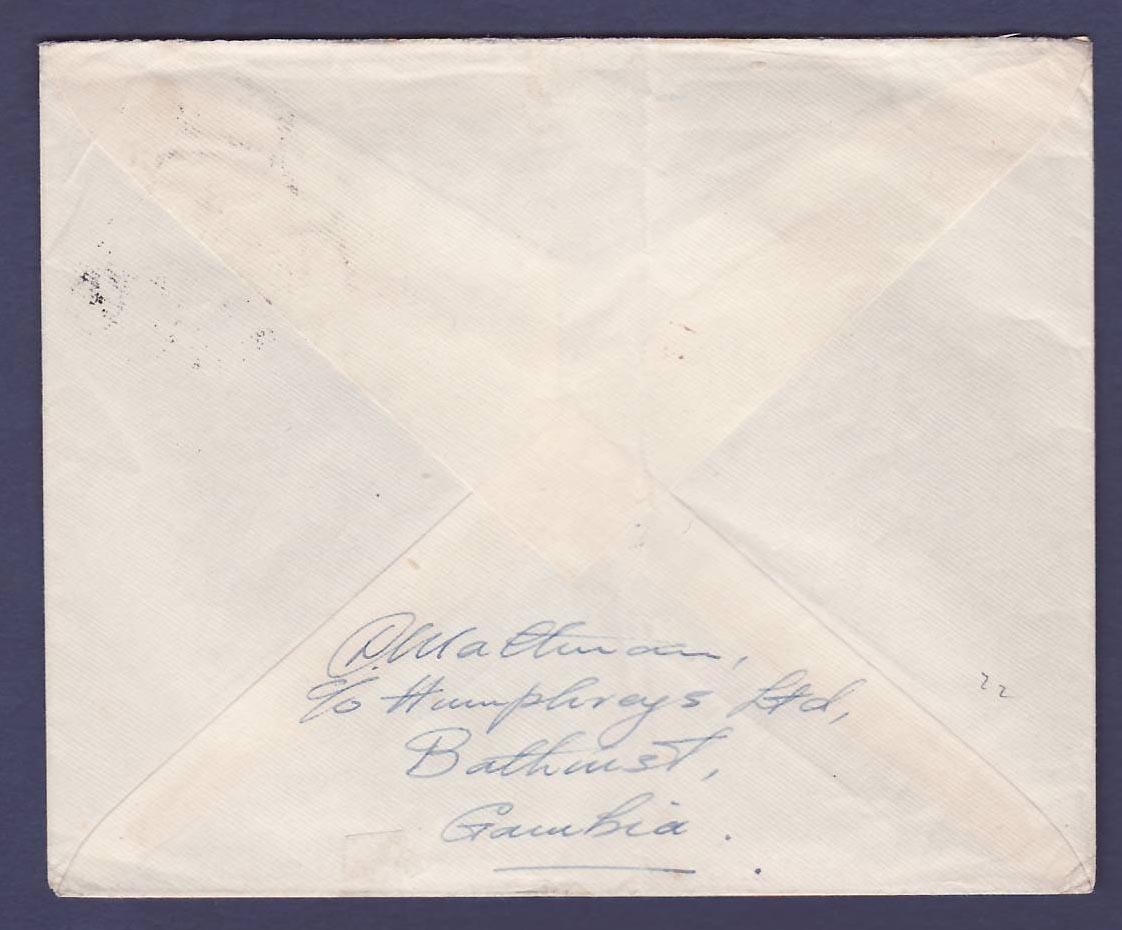 c/o Humphreys Ltd,
Bathurst,
Gambia.
22